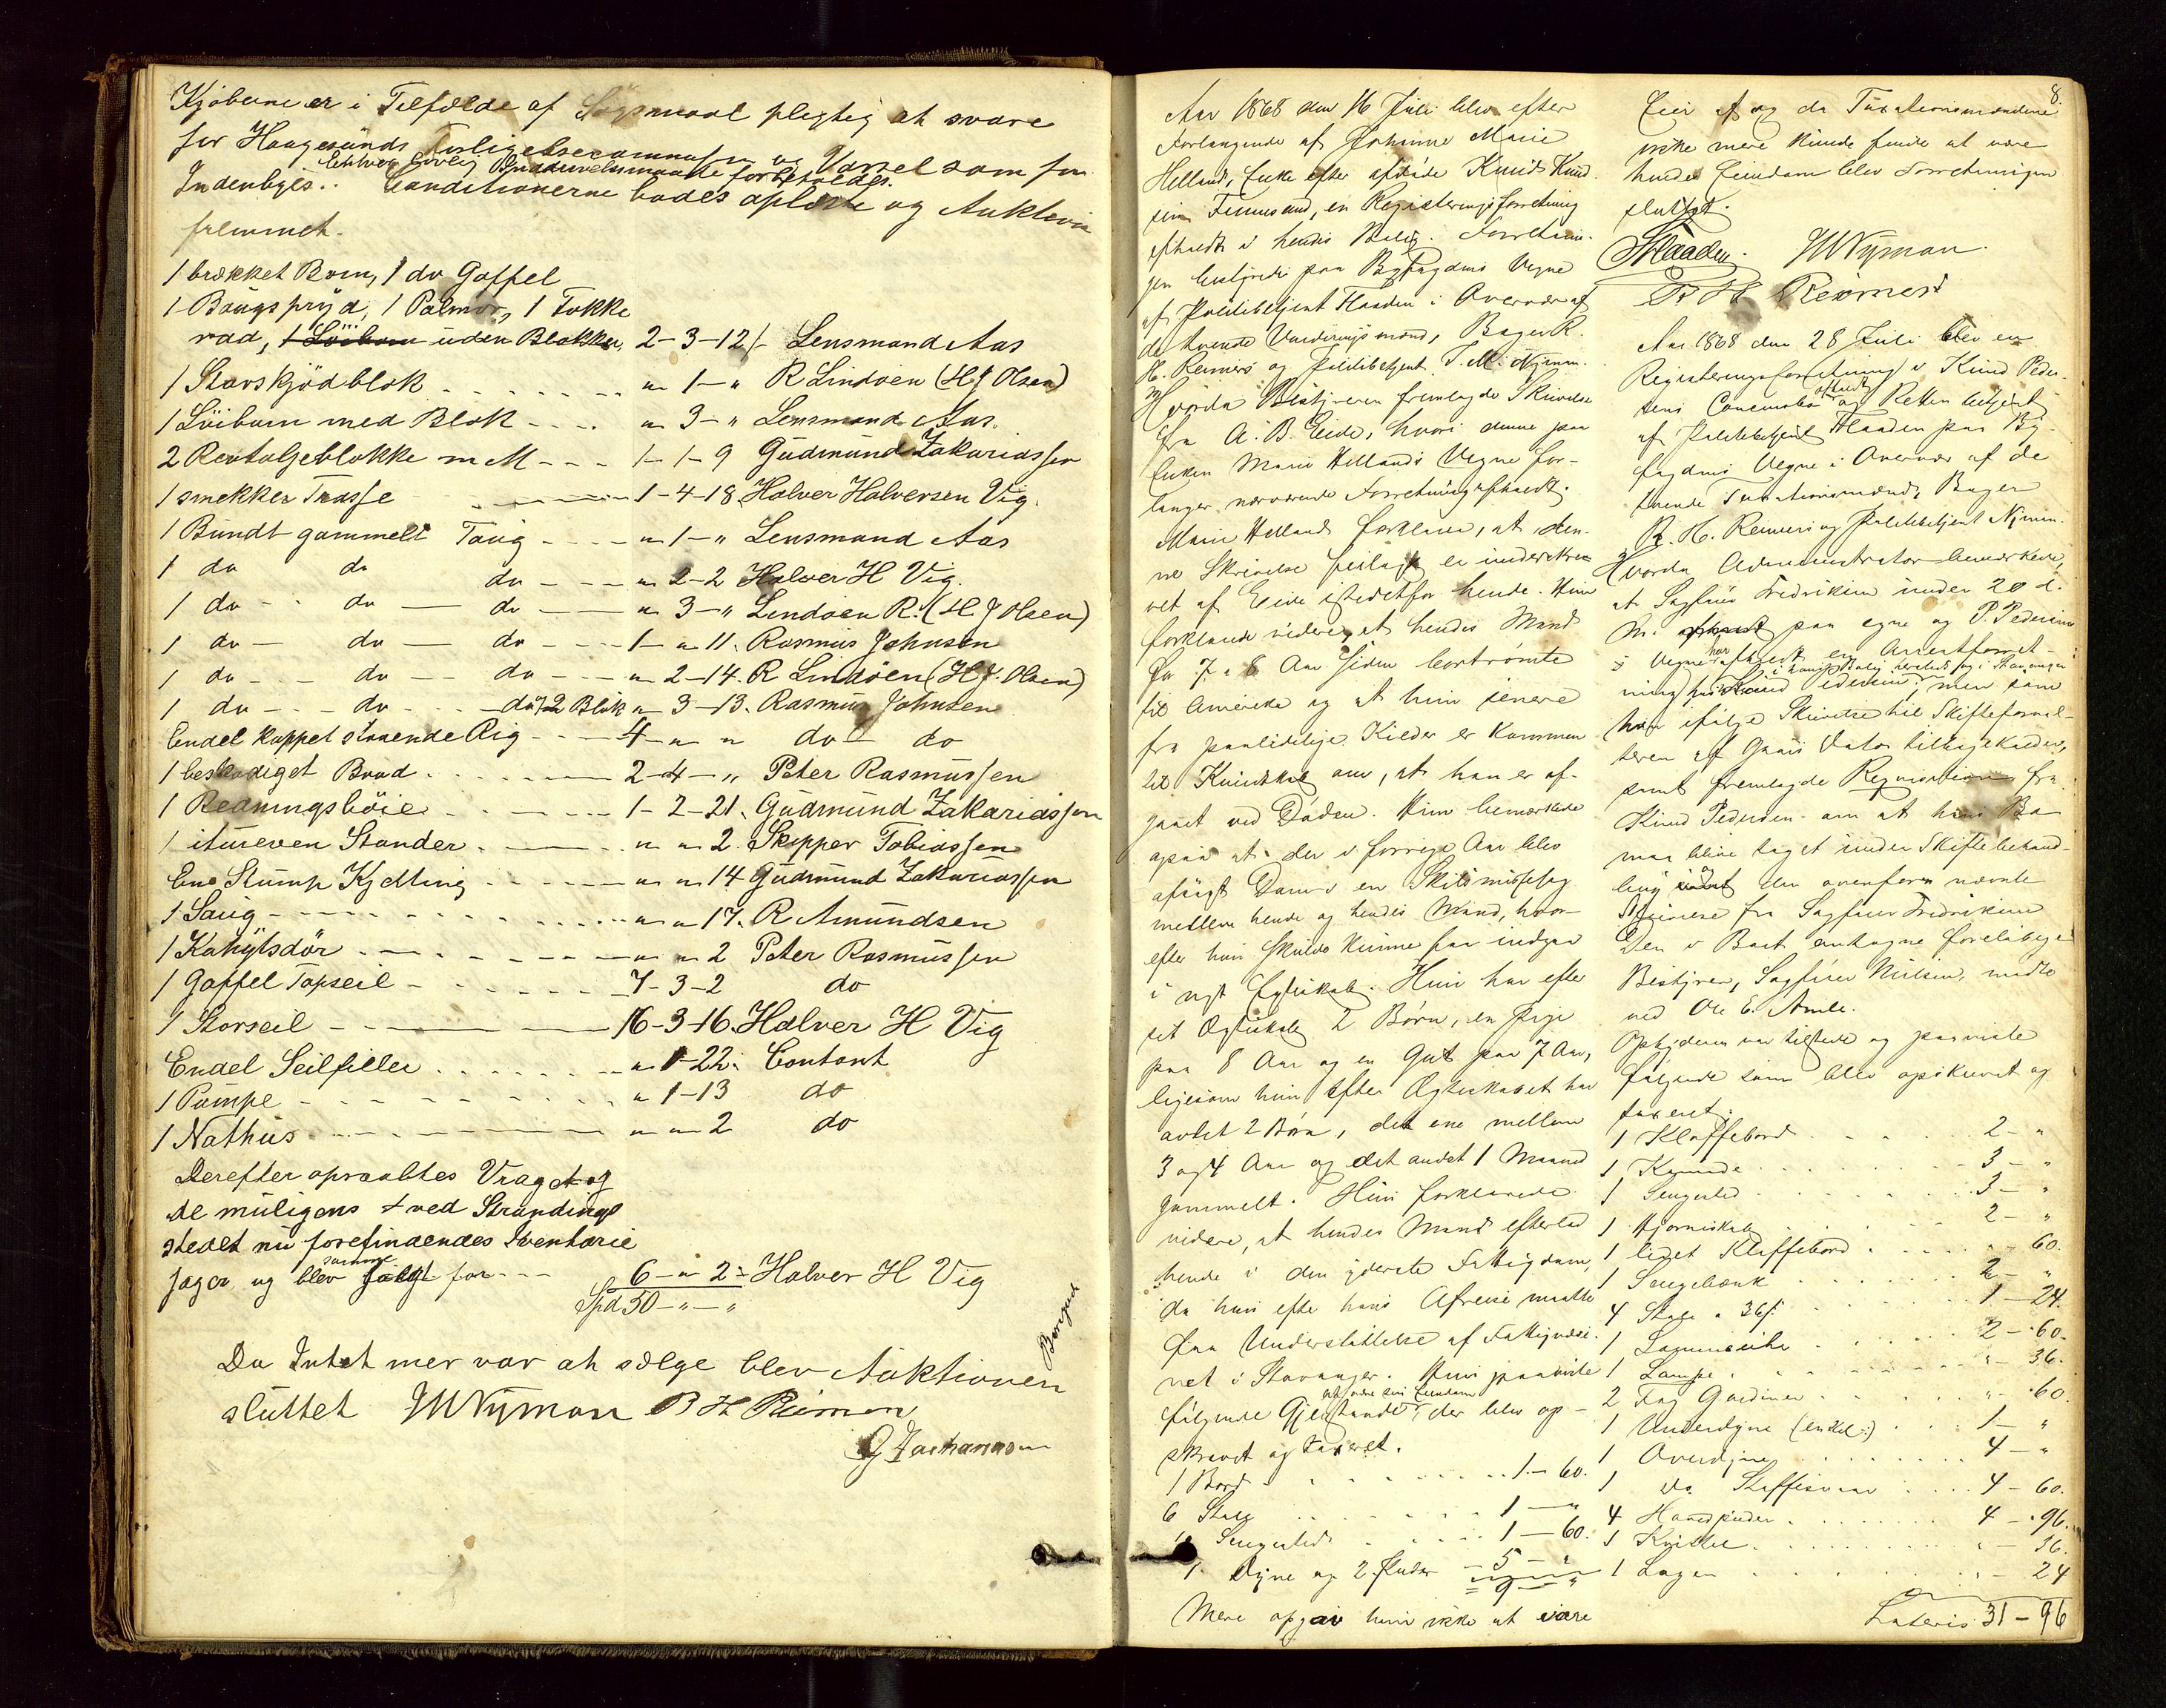 Kjøberne er i Tilfælde af Søgsmaal pligtig at svare
for Haugesunds Forligelsescommission og Varsel som for
Enhver lovlig Inddrivelsesmaade forbeholdes.
Indenbyes. Conditionerne bodes oplæste og Auktion
fremmet.
1 brækket Bom, 1 do Gaffel
1 Bougspryd, 1 Palmor, 1 Fokke
raa, 1 Löibom uden Blokke, 2-3-12/- Lensmand Aas
1 Storskjødblok - - - " 1 - " R Lindøen (H J Olsen)
1 Löibom med Blok - - - " 3 - " Lensmand Aas.
2 Rentaljeblokke m M - - - 1-1-9 Gudmund Zakariassen
1 smekker Trosse - - - 1-4-18 Halver Halversen Vig.
1 Bundt gammelt Toug - - - " 1 - " Lensmand Aas
1 do do do - - - " 2-2 Halver H Vig.
1 do - do - do - " 3 - " Lindøen R. (H J Olsen)
1 do - do - do - - - 1 - " 11. Rasmus Johnsen
1 do - - do - do - - " 2-14. R Lindöen (H J. Olsen)
1 do - - do - - do 2 Blok " 3-13. Rasmus Johnsen
Endel kappet staaende Rig - - - 4 - " " do - do
1 beskadiget Baad - - - 2-4 - " Peter Rasmussen
1 Redningsbøie - - - 1-2-21. Gudmund Zakariassen
1 itureven Stander - - - " " 2. Skipper Tobiassen
En Stump Kjetting - - - " " 14 Gudmund Zakariassen
1 Saug - - - " " 17. R Amundsen
1 Kahytsdör - - - " " 2 Peter Rasmussen
1 Gaffel Topseil - - - 7-3-2 do
1 Storseil - - - 16-3-16. Halver H Vig
Endel Seilfiller - - - " 1-22. Contant
1 Pumpe - - - " 1-13 do
1 Nathus - - - " " 2 do
Derefter opraabtes Vraget og
de muligens ved Strandings
stedet nu forefindendes Inventarie
sager, og blev samme solgt for - - - 6 - " 2 - Halver H Vig
Spd 50 - " - "
Beregnet
Da Intet mer var at sælge blev Auktionen
sluttet JM Nyman R H Reimers
G Zachariassen
8.
Aar 1868 den 16 Juli blev efter
Forlangende af Johanne Marie
Helland, Enke efter afdøde Knud Knud
sen , en Registeringsforretning
afholdt i hendes Bolig. Forretnin-
gen bestyredes paa Byfogdens Vegne
af Politibetjent Flaaden i Overvær af
de tvende Vurderingsmænd, Bager R.
H. Reimers og Politibetjent J. M. Nyman.
Hvorda Bestyreren fremlagde Skrivelse
fra A. B. Eide, hvori denne paa
Enken Marie Hellands Vegne for-
langer nærværende Forretning afholdt.
Marie Helland forklarer, at den-
ne Skrivelse feilagt er underskre-
vet af Eide istedetfor hende. Hun
forklarede videre, at hendes Mand
for 7 a 8 Aar siden bortrømte
til Amerika og at hun senere
fra paalidelige Kilder er kommen
til Kundskab om, at han er af-
gaaet ved Døden. Hun bemærkede
ogsaa at der i forrige Aar blev
afsagt Dom i en Skilsmissesag
mellem hende og hendes Mand, hvor-
efter hun skulde kunne faa indgaa
i nyt Egteskab. Hun har efter
sit Ægteskab 2 Børn, en Pige
paa 8 Aar og en Gut paa 7 Aar,
ligesom hun efter Ægteskabet har
avlet 2 Børn, det ene mellem
3 og 4 Aar og det andet 1 Maaned
gammelt. Hun forklarede
videre, at hendes Mand efterlod
hende i den yderste Fattigdom,
da hun efter hans Afreise maatte
faa Understøttelse af Fattigvæse-
net i Stavanger. Hun paaviste
følgende Gjenstande at være sin Eiendom, der blev op-
skrevet og taxeret.
1 Bord - - - 1 - 60.
6 Stole - - - 1 - "
1 Sengested - - - 1 - 60.
1 Dyne og 2 Puder - 5 - "
= 9 - "
Mere opgav hun ikke at være
Eier af og da Taxationsmændene
ikke mere kunde finde at være
hendes Eiendom blev Forretningen
sluttet.
Flaaden. JM Nyman.
R H Reimers
Aar 1868 den 28 Juli blev en
Registeringsforretning i Knud Peder-
sens Concursbo afholdt og Retten betjent
af Politibetjent Flaaden paa By-
fogdens Vegne i Overvær af de
tvende Taxationsmænd, Bager
R. H. Reimers og Politibetjent Nyman.
Hvorda Administrator bemærkede,
at Sagfører Fredriksen under 20 d.
M. paa egne og P. Pedersens
Vegne har afholdt en Arrestforret-
ning hos Knud Pedersen, i hans Bolig hersteds og i Stavanger men som
han ifølge Skrivelse til Skifteforval-
teren af Gaars Dato tilbagekalder,
samt fremlagde Requisition fra
Knud Pedersen om at hans Bo
maa blive taget under Skiftebehand-
ling og den ovenfor nævnte
Skrivelse fra Sagfører Fredriksen
Den i Boet antagne foreløbige
Bestyrer, Sagfører Nilsen, mødte
ved Ole E. Amle.
Opbyderen var tilstede og paaviste
følgende som blev opskrevet og
taxeret:
1 Klaffebord - - - 2 - "
1 Komode - - - 3 - "
1 Sengested - - - 3 - "
1 Hjørneskab - - - 2 - "
1 lidet Klaffebord - - - " - 60.
1 Sengebænk - - - 2 - "
4 Stole a 36 s. - - - 1 - 24.
1 Lommeuhr - - - 2 - 60.
1 Lampe - - - " - 36.
2 Fag Gardiner - - - " - 60
1 Underdyne (enkel) - - - 1 - "
1 Overdyne - - - 4 - "
1 do - - - 4 - 60.
4 Hovedpuder - - - 4 - 96.
1 - - - " - 36.
1 Lagen - - - " - 24
Lateris 31 - 96